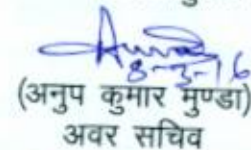 8-3-16
(अनुप कुमार मुण्डा)
अवर सचिव